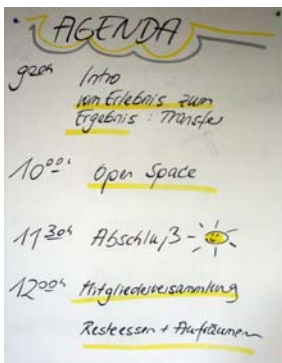 AGENDA
9ºº h Intro
vom Erlebnis zum
Ergebnis : Transfer
10ºº h Open Space
11³⁰ h Abschluß
12ºº h Mitgliederversammlung
Resteessen + Aufräumen